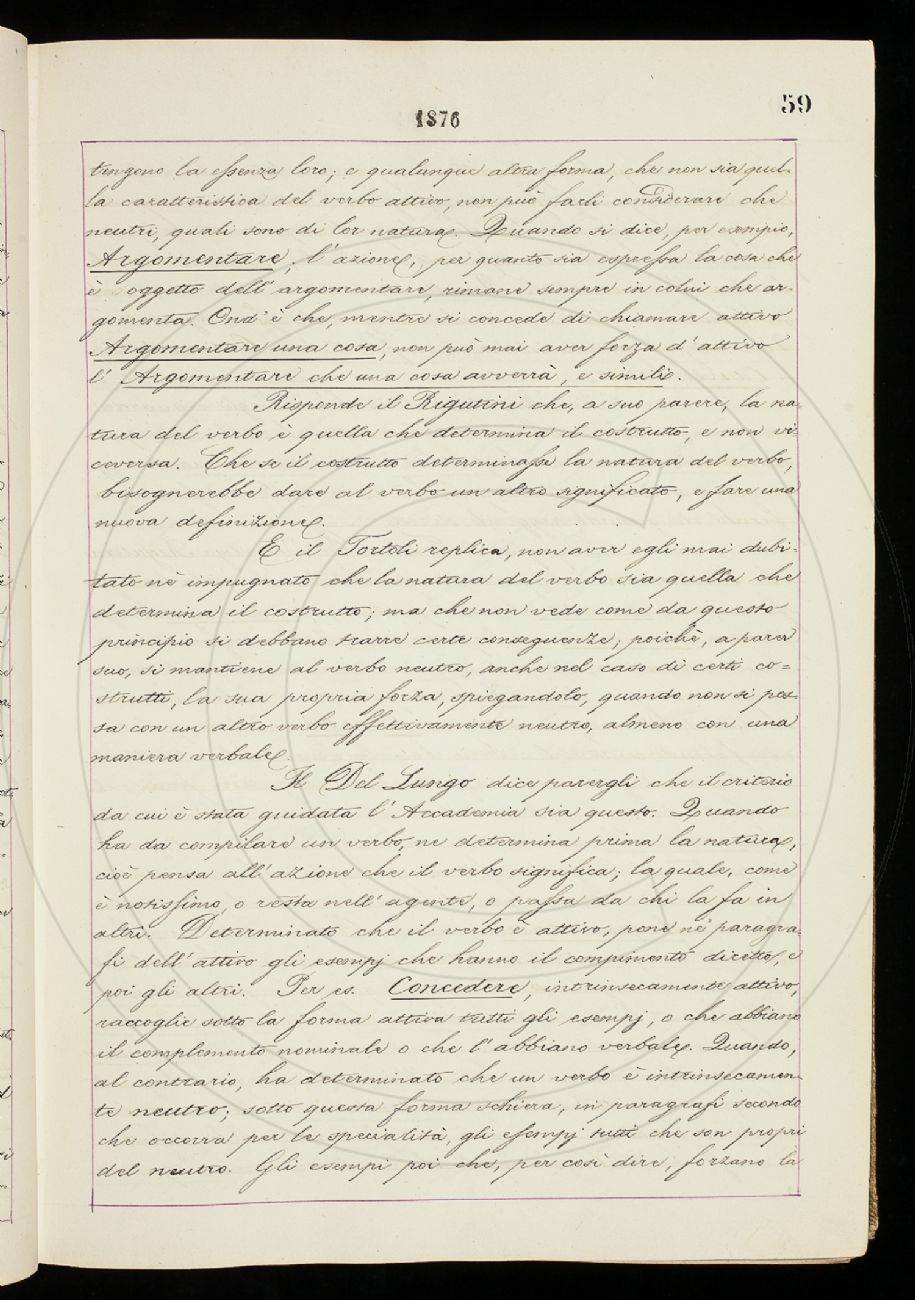 59
1876
tengono la essenza loro; e qualunque altra forma, che non sia quel-
la caratteristica del verbo attivo, non può farli considerare che
neutri, quali sono di lor natura. Quando si dice, per esempio,
Argomentare, l'azione, per quanto sia espressa la cosa che
è oggetto dell'argomentare, rimane sempre in colui che ar-
gomenta. Ond'è che, mentre si concede di chiamare attivo
Argomentare una cosa, non può mai aver forza d'attivo
l'Argomentare che una cosa avverrà, e simili.
Risponde il Rigutini che, a suo parere, la na-
tura del verbo è quella che determina il costrutto, e non vi-
ceversa. Che se il costrutto determinasse la natura del verbo,
bisognerebbe dare al verbo un altro significato, e fare una
nuova definizione.
E il Tortoli replica, non aver egli mai dubi-
tato nè impugnato che la natura del verbo sia quella che
determina il costrutto; ma che non vede come da questo
principio si debbano trarre certe conseguenze; poichè, a parer
suo, si mantiene al verbo neutro, anche nel caso di certi co=
strutti, la sua propria forza, spiegandolo, quando non si pos-
sa con un altro verbo effettivamente neutro, almeno con una
maniera verbale.
Il Del Lungo dice parergli che il criterio
da cui è stata guidata l'Accademia sia questo. Quando
ha da compilare un verbo, ne determina prima la natura,
cioè pensa all'azione che il verbo significa; la quale, come
è notissimo, o resta nell'agente, o passa da chi la fa in
altri. Determinato che il verbo è attivo, pone ne' paragra-
fi dell'attivo gli esempj che hanno il compimento diretto, e
poi gli altri. Per es. Concedere, intrinsecamente attivo,
raccoglie sotto la forma attiva tutti gli esempj, o che abbiano
il complemento nominale o che l'abbiano verbale. Quando,
al contrario, ha determinato che un verbo è intrinsecamen-
te neutro; sotto questa forma schiera, in paragrafi secondo
che occorra per le specialità, gli esempj tutti che son propri
del neutro. Gli esempi poi che, per così dire, forzano la